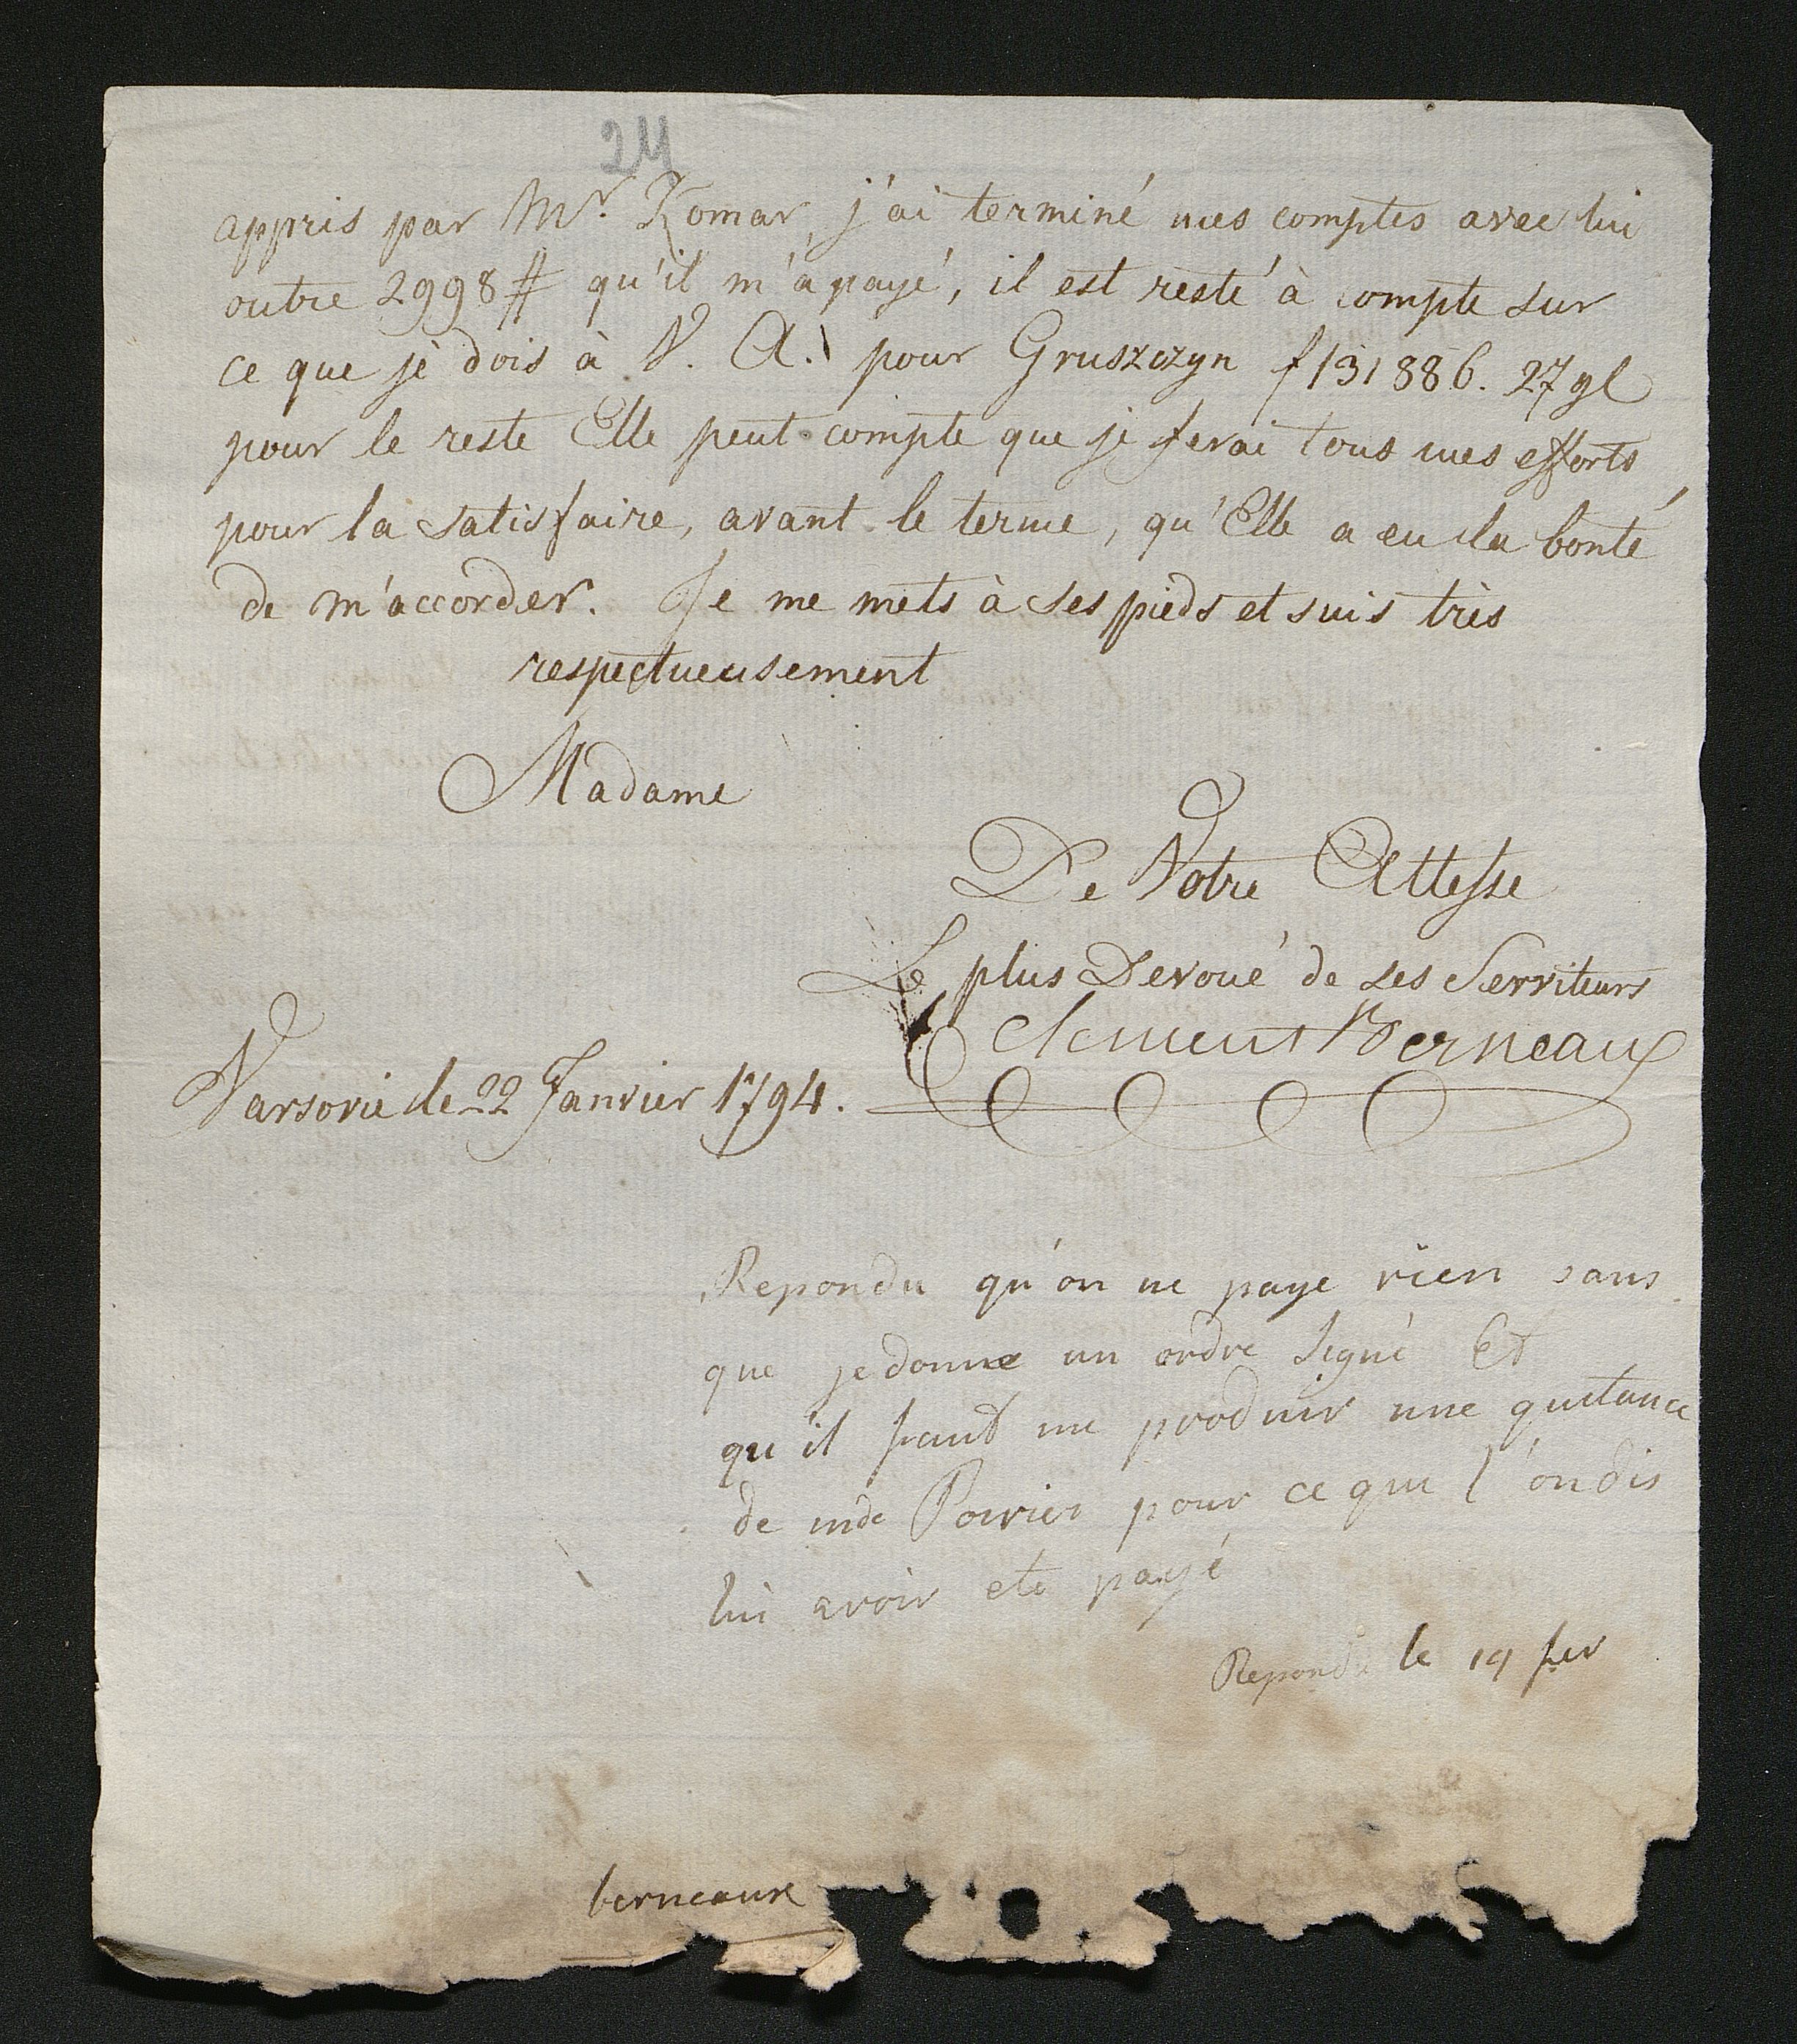 24
appris par Mr. Komar, j'ai terminé mes comptes avec lui
outre 2998 # qu'il m'a payé, il est resté à compte sur
ce que je dois à V. A. pour Gruszczyn f 131886. 27 gl
pour le reste Elle peut compte que je ferai tous mes efforts
pour la satisfaire, avant le terme, qu'Elle a eu la bonté
de m'accorder. Je me mets à ses pieds et suis très
respectueusement
Madame
De Votre Altesse
Le plus Devoué de ses Serviteurs
Clement Berneaux
Varsovie le 22 Janvier 1794.
Repondu qu'on ne paye rien sans
que je donne un ordre signé Et
qu'il faut me produir une quitance
de mde Poirier pour ce que l'on dis
lui avoir eté payé
Repondu le 19 fev
berneaux